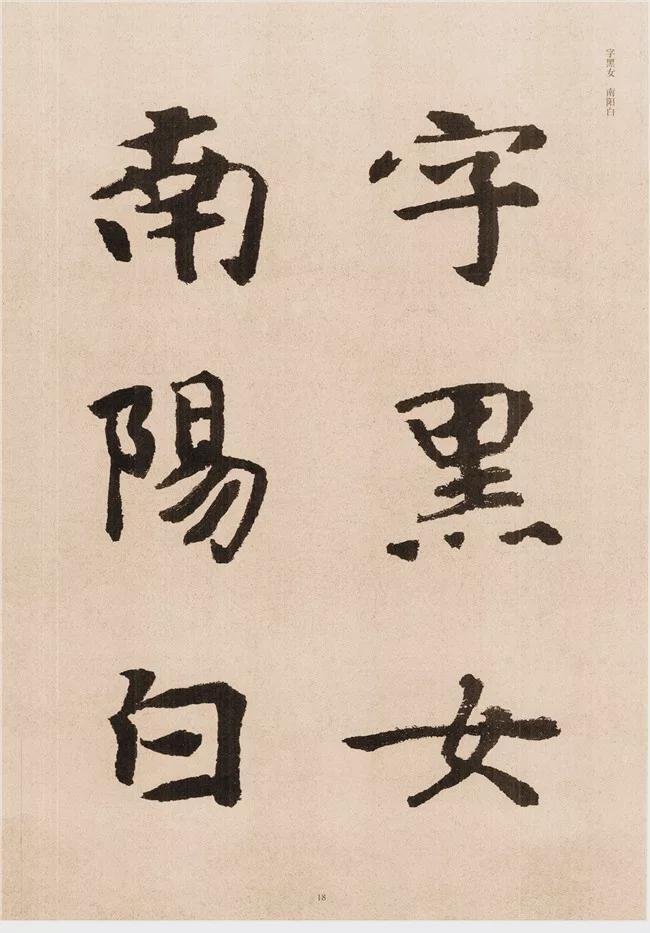 字黑女 南阳白
字黑女
南陽白
18